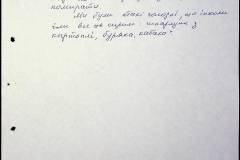 помирати.
Ми були такі голодні, що інколи
їли все це сирим: шкарлупи з
картоплі, буряка, кабака.